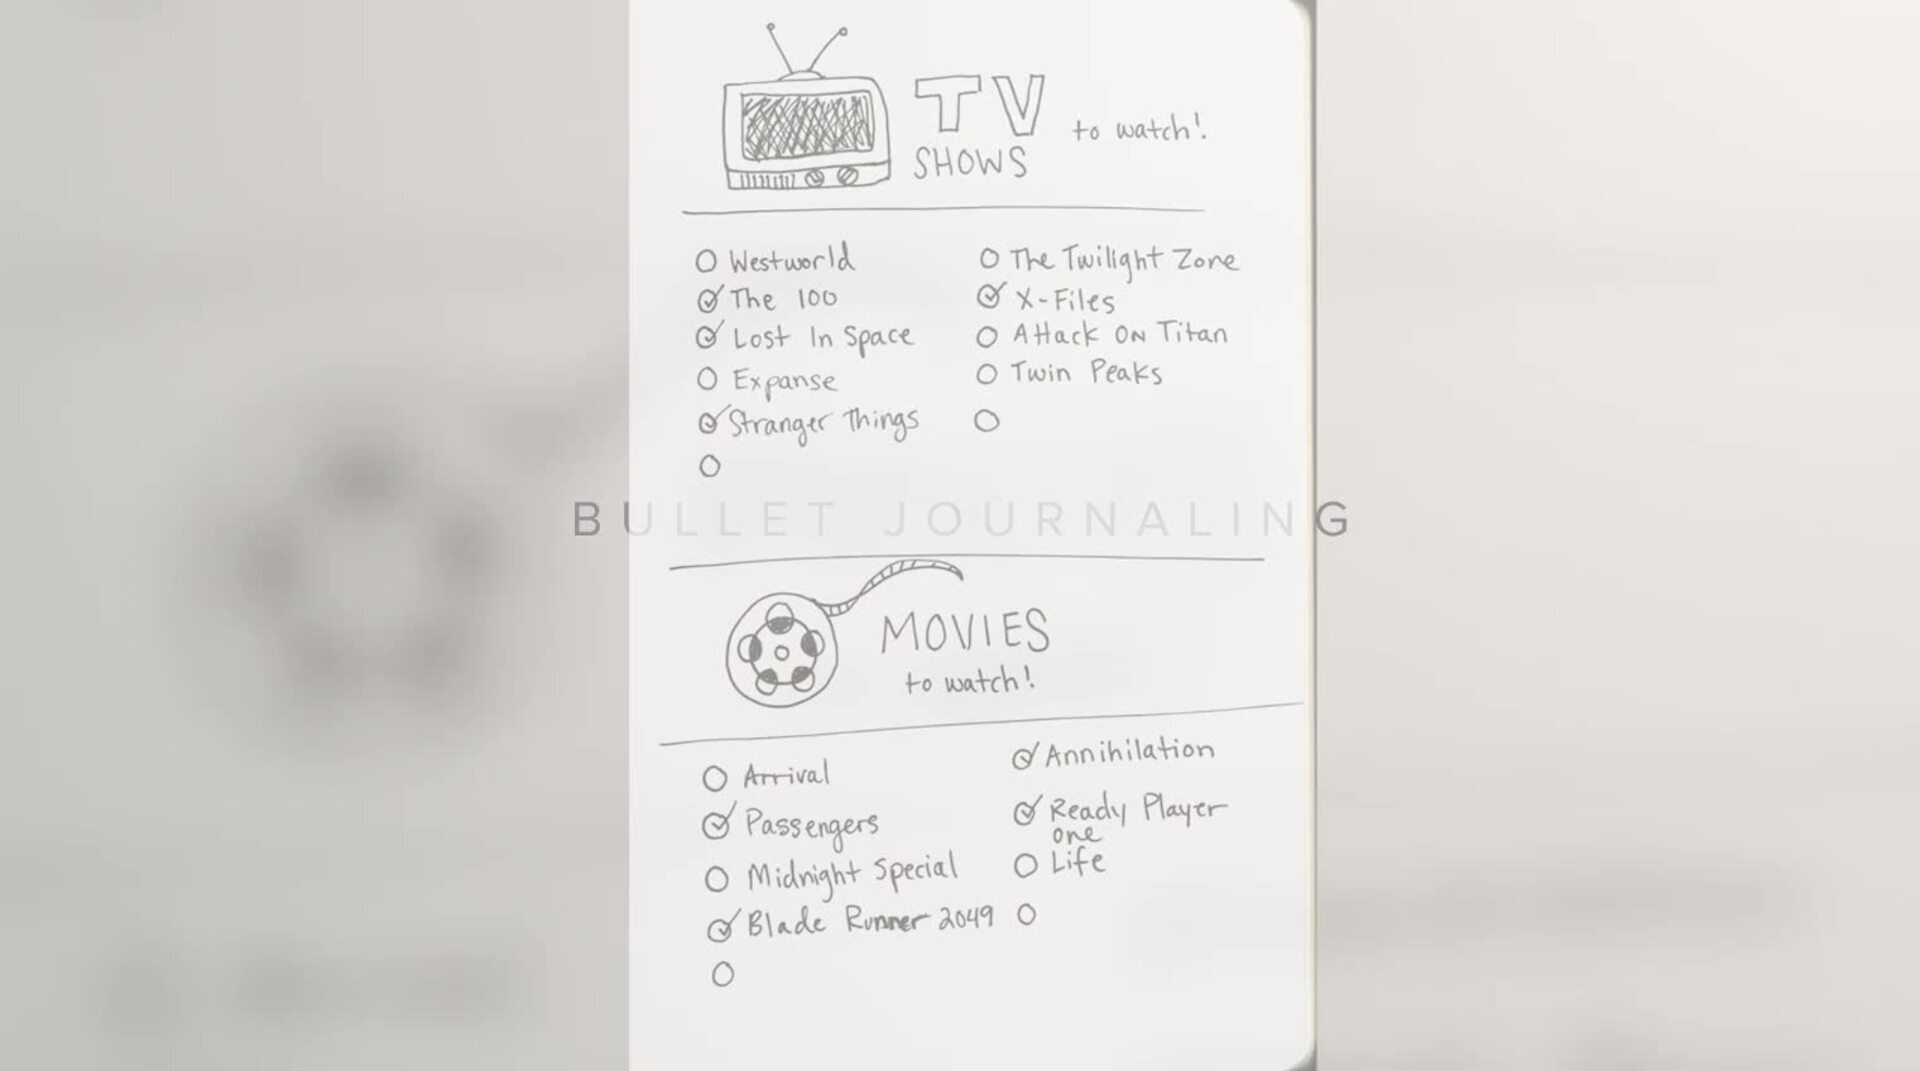 TV
SHOWS
to watch!
Westworld
The 100
Lost In Space
Expanse
Stranger Things
The Twilight Zone
X-Files
Attack On Titan
Twin Peaks
BULLET JOURNALING
MOVIES
to watch!
Arrival
Passengers
Midnight Special
Blade Runner 2049
Annihilation
Ready Player
one
Life